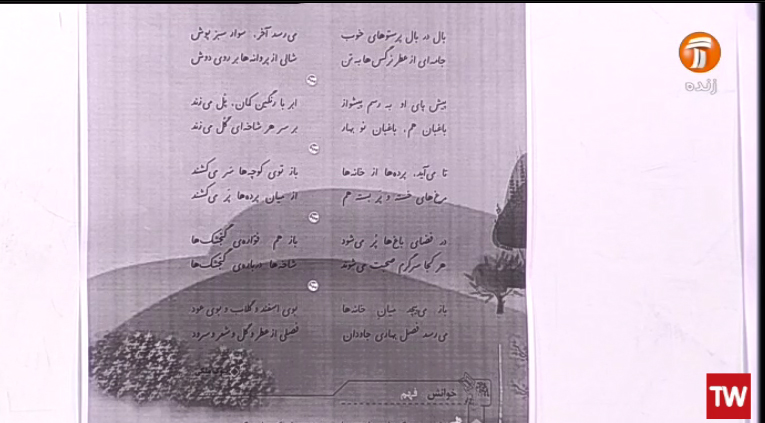 بال در بال پرستوهای خوب می‌رسد آخر، سوار سبزپوش
جامه‌ای از عطر نرگس‌ها به تن شالی از پروانه‌ها بر روی دوش
پیش پای او به رسم پیشواز ابر با رنگین کمان، پل می‌زند
باغبان هم، باغبان نو بهار بر سر هر شاخه‌ای گل می‌زند
تا می‌آید، پرده‌ها از خانه‌ها باز توی کوچه‌ها سر می‌کشند
مرغ‌های خسته و پر بسته هم از میان پرده‌ها پر می‌کشند
در فضای باغ‌ها پر می‌شود باز هم فواره‌ی گنجشک‌ها
هر کجا سرگرم صحبت می‌شوند شاخه‌ها درباره‌ی گنجشک‌ها
باز می‌پیچد میان خانه‌ها بوی اسفند و گلاب و بوی عود
می‌رسد فصل بهاری جاودان فصلی از عطر و گل و شعر و سرود
خوانش فهم
زنده
TW